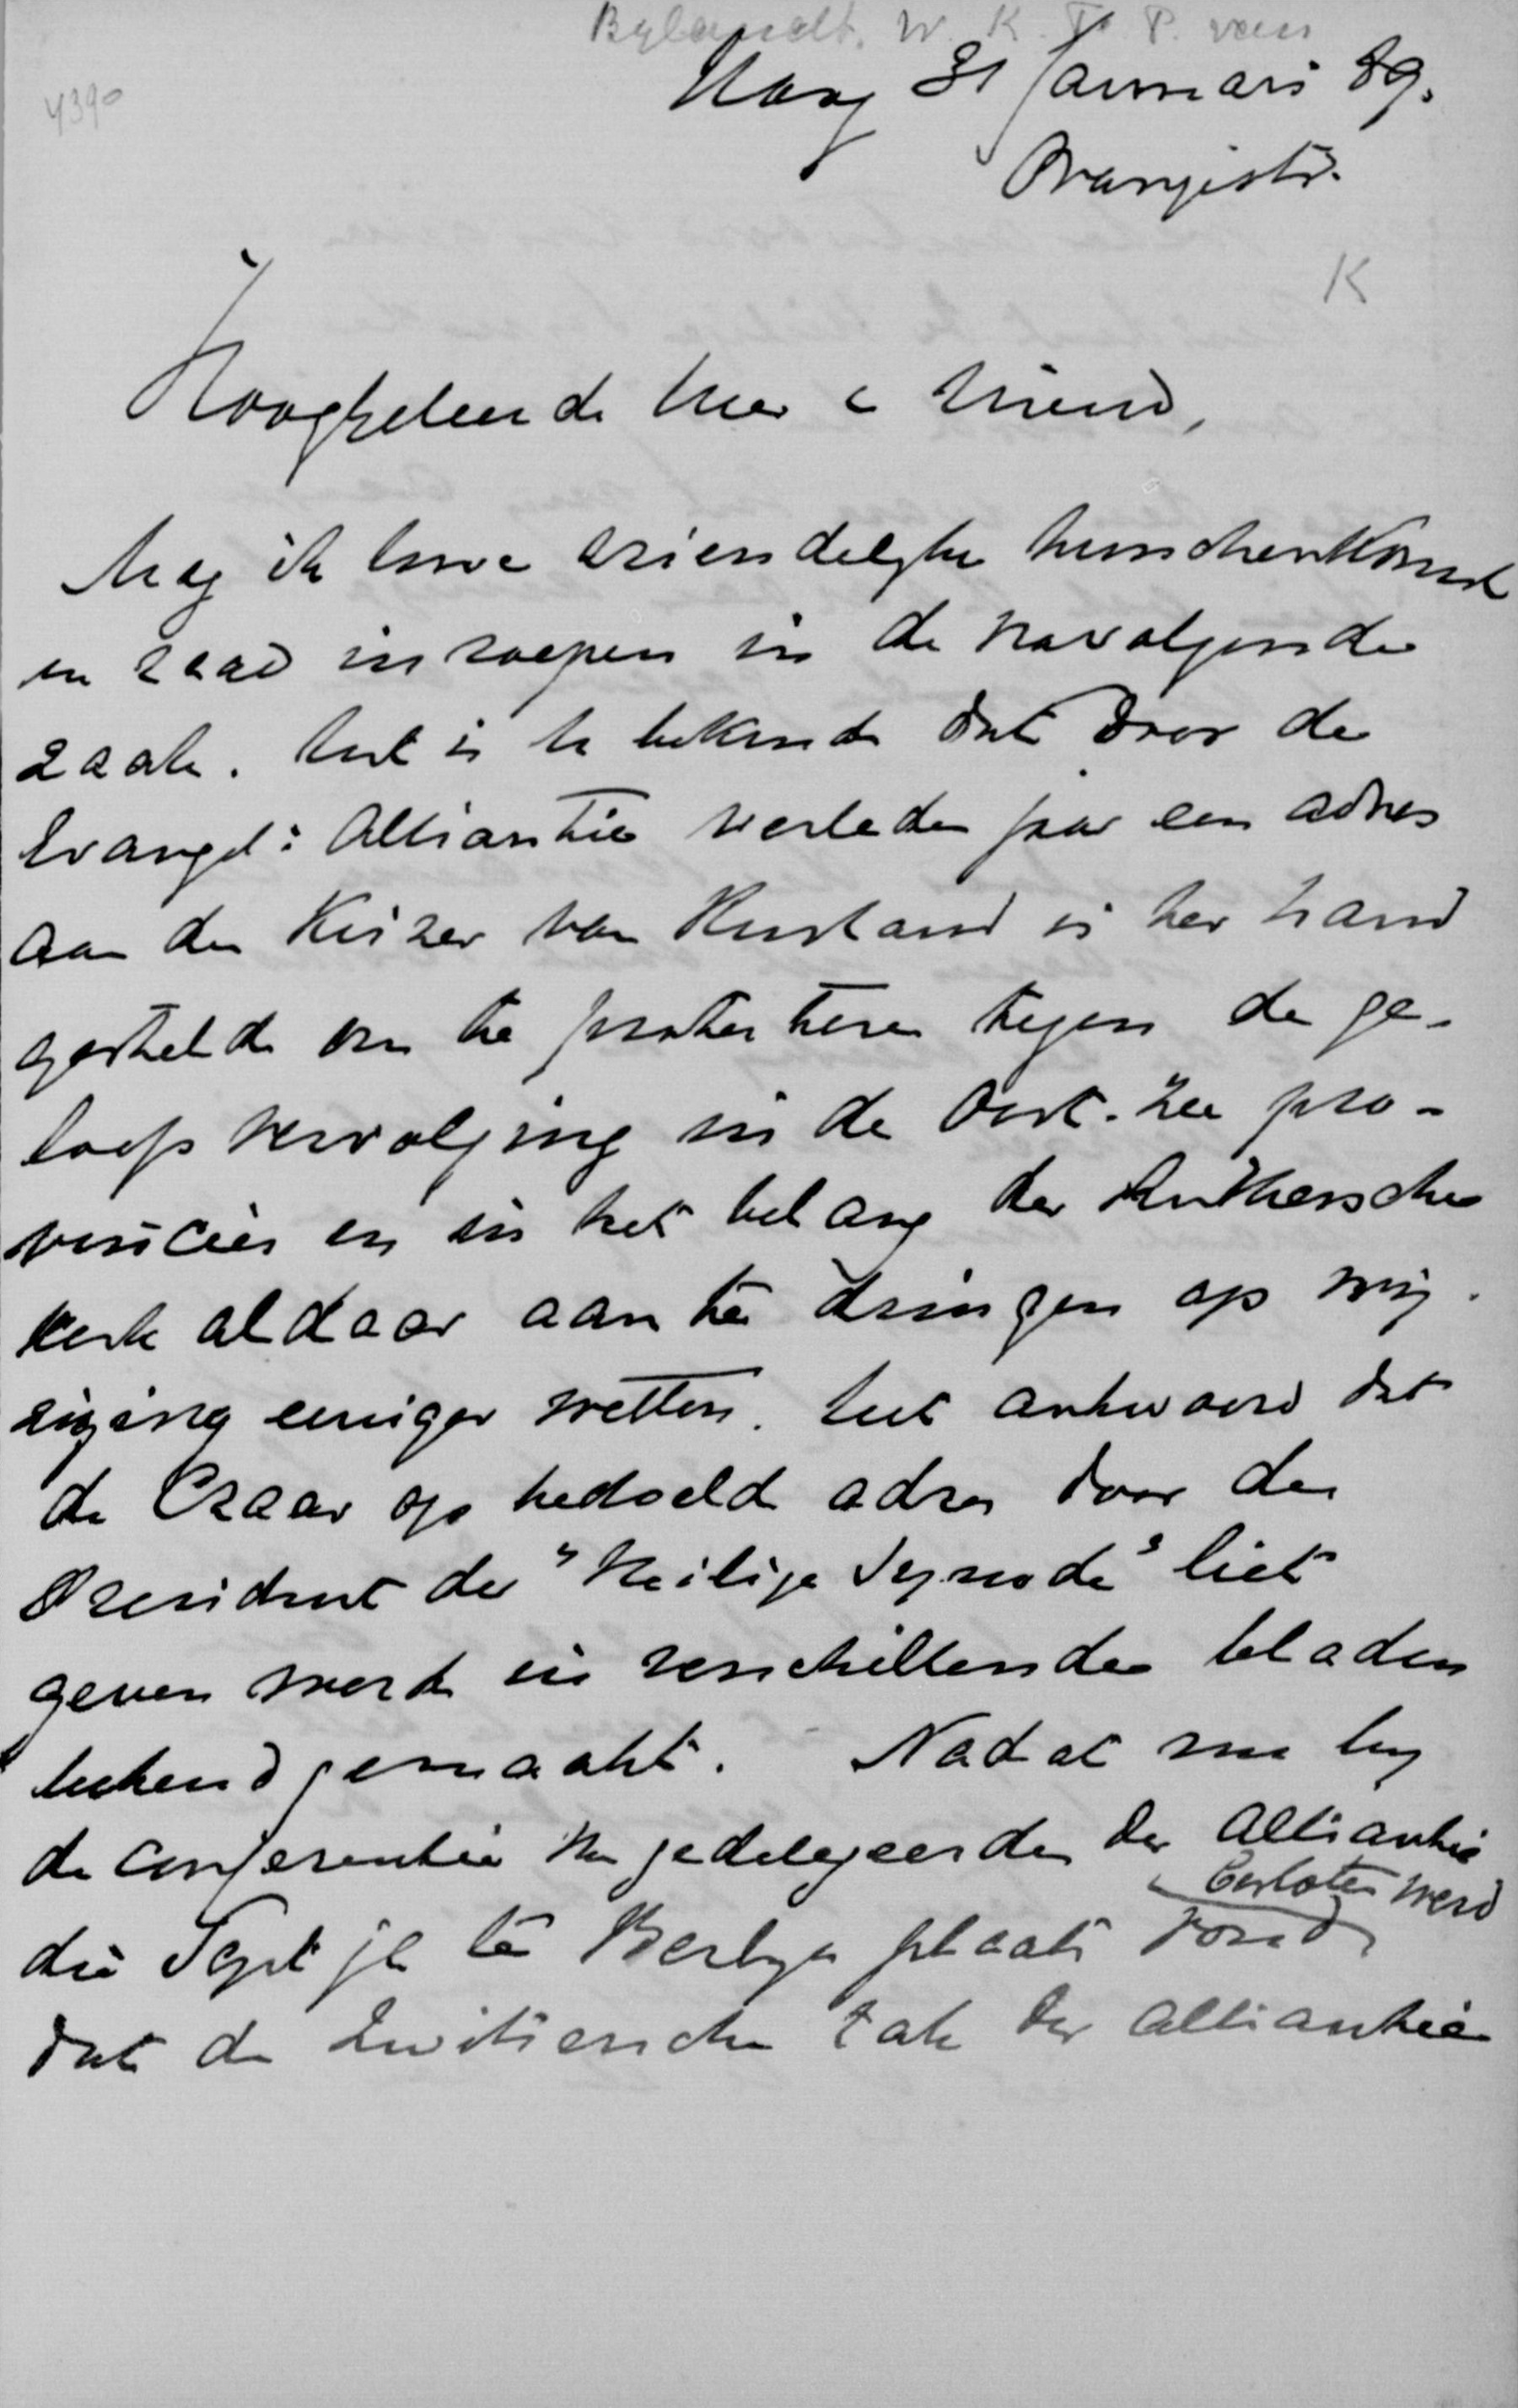 Bylandt. W. K. F. P. van
4390
Haag 31 Januari 89.
Oranjestr.
K
Hooggeleerde Heer & Vriend,
Mag ik Uwe vriendelyke tusschenkomst
en raad inroepen in de navolgende
zaak. Het is U bekend dat door de
Evangel: Alliantie verleden jaar een adres
aan den Keizer van Rusland is ter hand
gesteld om te protesteren tegen de ge-
loofsvervolging in de Oost-Zee pro-
vinciën en in het belang der Luthersche
kerk aldaar aan te dringen op wij-
ziging eeniger wetten. Het antwoord dat
de Czaar op bedoeld adres door den
President der "Heilige Synode" liet
geven werd in verschillende bladen
bekend gemaakt. Nadat nu by
de conferentie der gedelegeerden der Alliantie
die Sept jl te Berlyn plaats vond besloten werd
dat de Zwitsersche tak der Alliantie